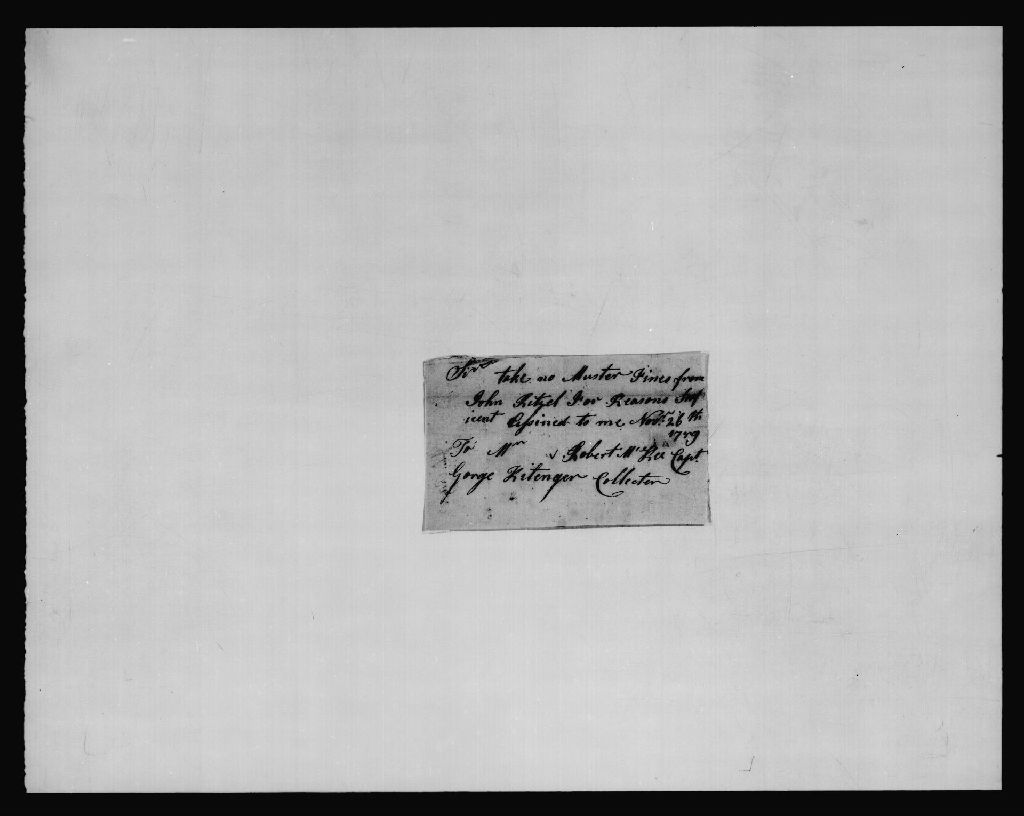 Sir
take no Muster Fines from
John Ritzel For Reasons Suf
icent Assined to me Novr. 26 th
To Mr Robert McKee Capt
Gorge Kitenger Collecter